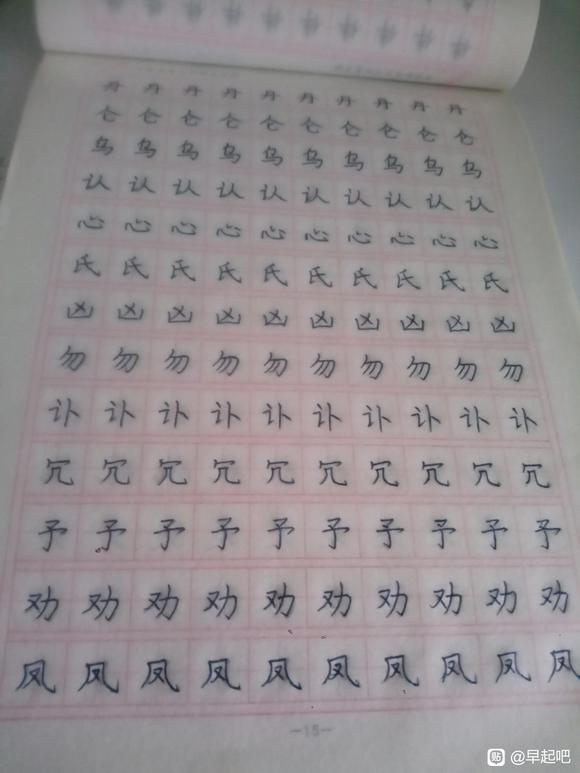 丹丹丹丹丹丹丹丹丹丹
仑仑仑仑仑仑仑仑仑仑
乌乌乌乌乌乌乌乌乌乌
认认认认认认认认认认
心心心心心心心心心心
氏氏氏氏氏氏氏氏氏氏
凶凶凶凶凶凶凶凶凶凶
勿勿勿勿勿勿勿勿勿勿
讣讣讣讣讣讣讣讣讣讣
冗冗冗冗冗冗冗冗冗冗
予予予予予予予予予予
劝劝劝劝劝劝劝劝劝劝
凤凤凤凤凤凤凤凤凤凤
—15—
贴 @早起吧